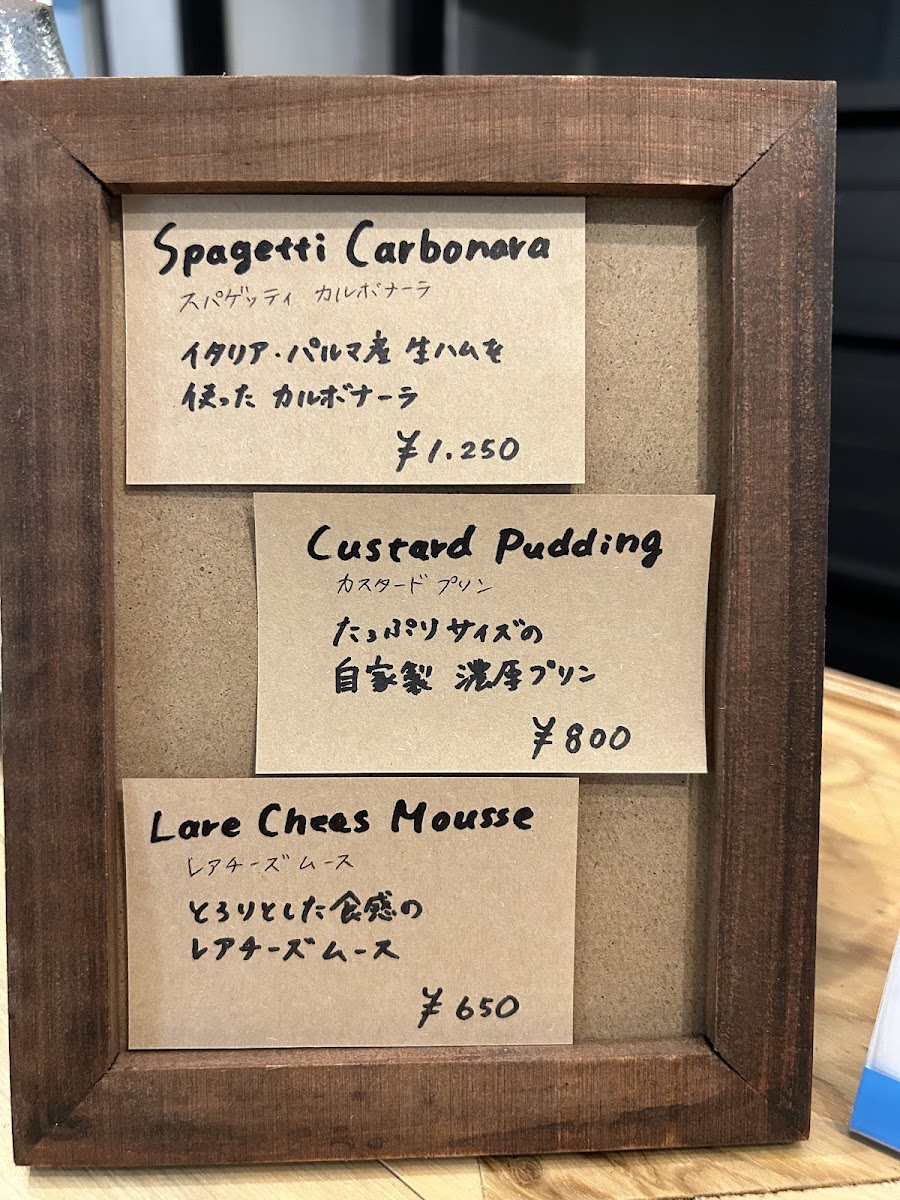 Spagetti Carbonara
スパゲッティ カルボナーラ
イタリア・パルマ産 生ハムを
使った カルボナーラ
¥1.250
Custard Pudding
カスタード プリン
たっぷりサイズの
自家製 濃厚プリン
¥800
Lare Chees Mousse
レアチーズムース
とろりとした食感の
レアチーズムース
¥650